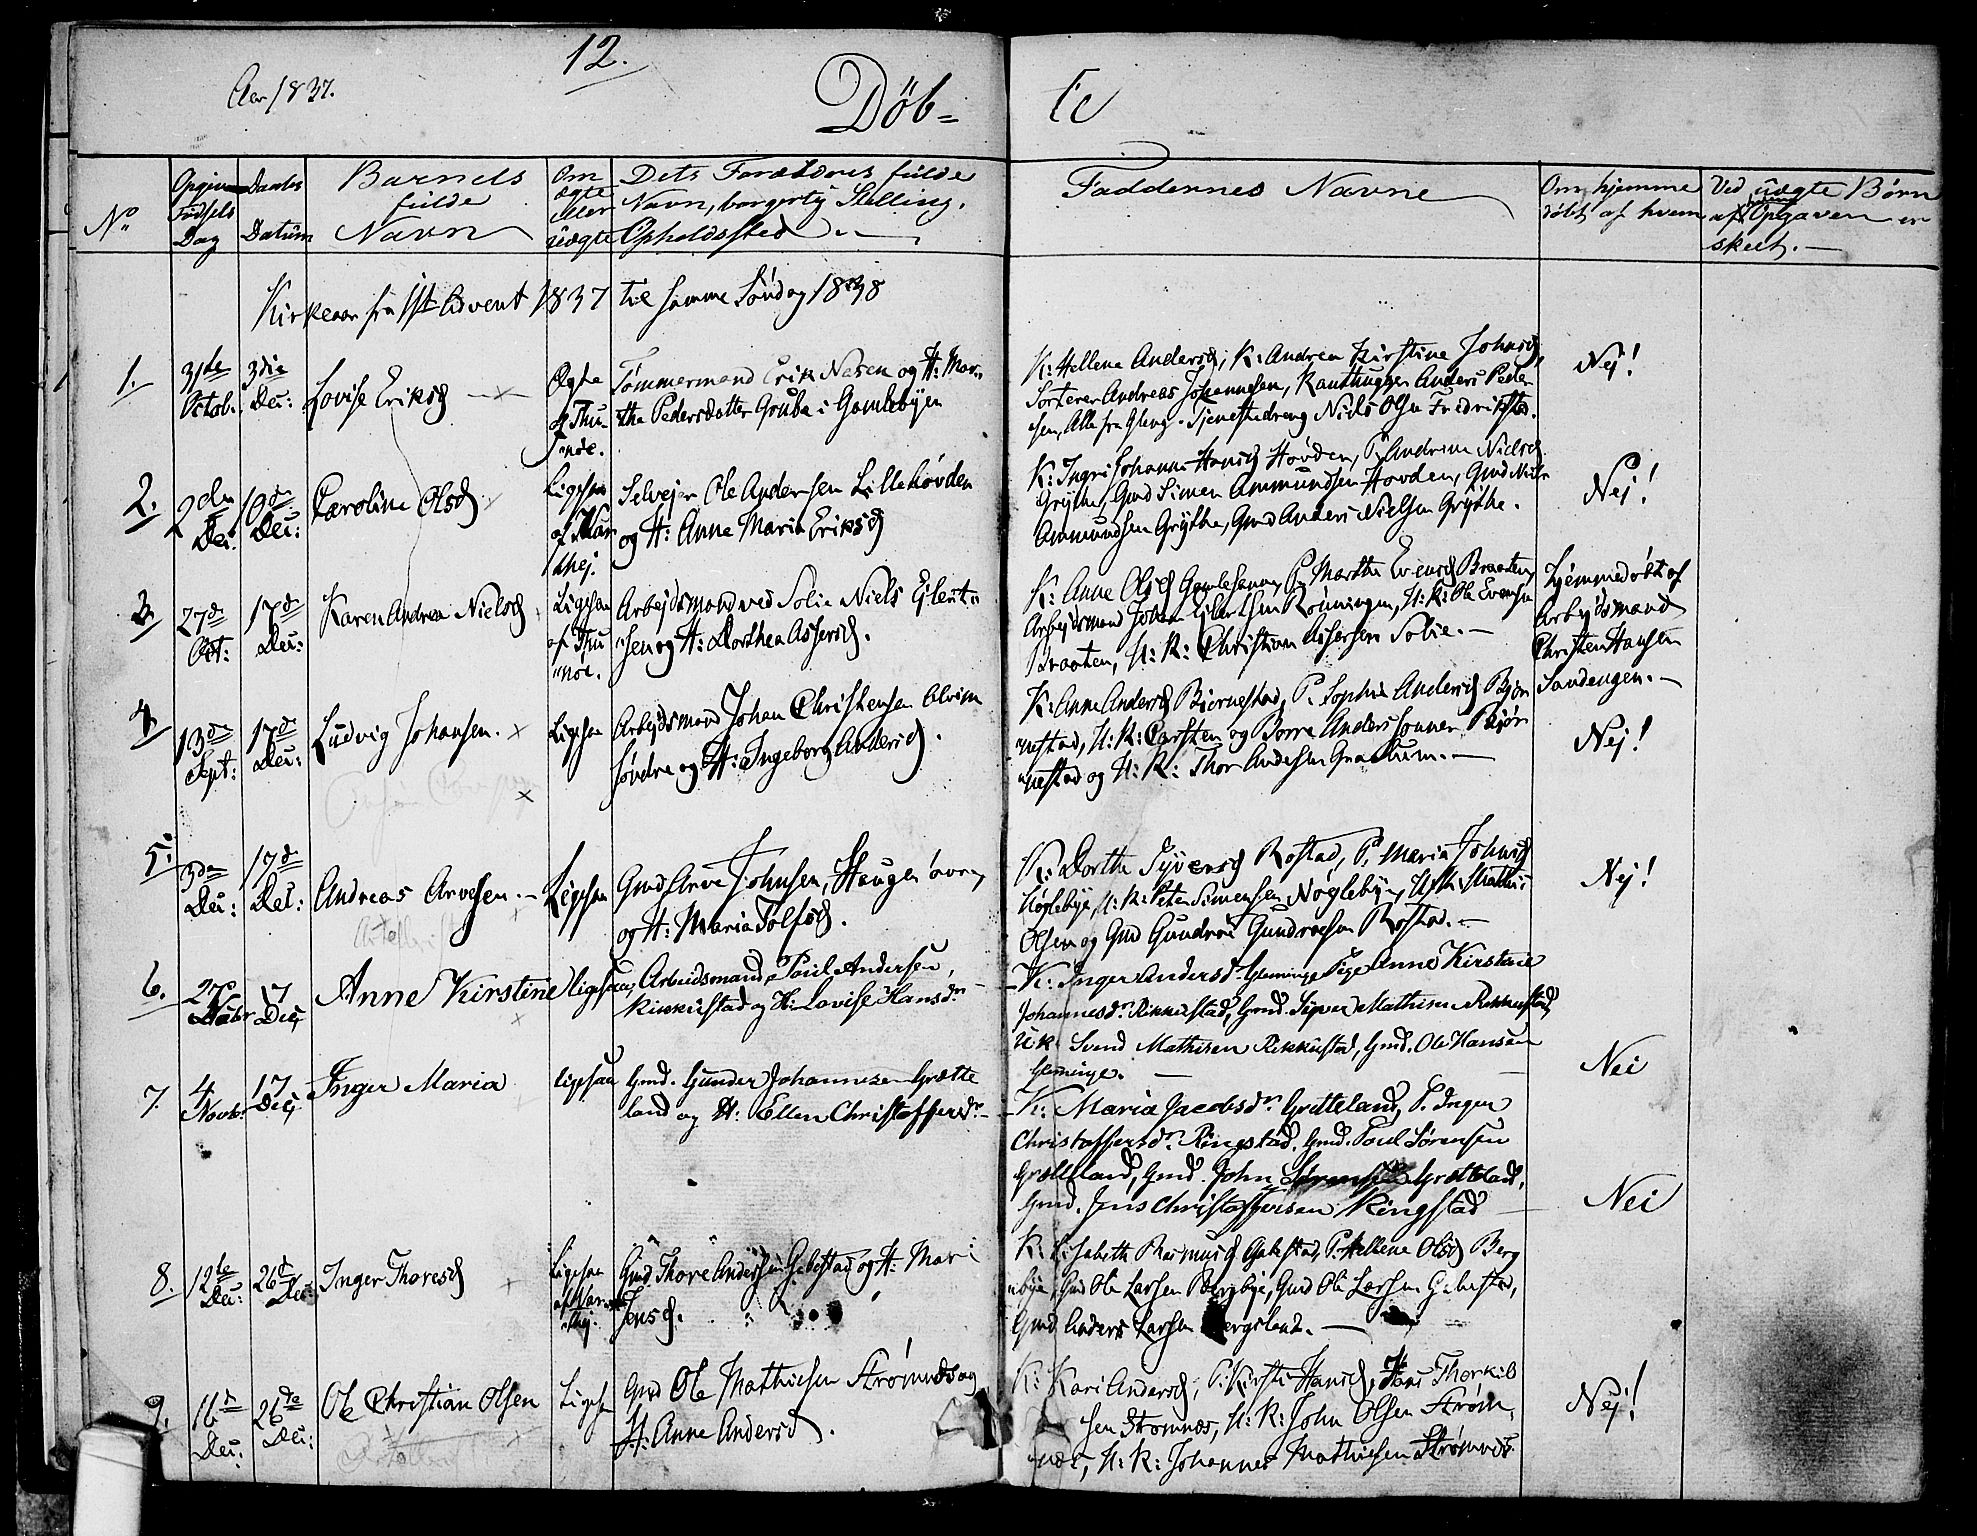 12.
Aar 1837.
Døb= te
No
Opgivne Fødsels Dag
Daabs Datum
Barnets fulde Navn
Om ægte eller uægte
Dets Forældres fulde Navn, borgerlig Stilling, Opholdssted
Faddernes Navne
Om hjemme døbt af hvem
Ved uægte Børn af Opgaven er skeet.
Kirkeaar fra 1ste Advent 1837 til samme Søndag 1838
1.
31de Octob.
3die Dec:
Lovise Eriksd
Ægte af Thu- nøe.
Tømmermand Erik Nesen og H: Mar-
tha Pedersdatter Grube i Gamlebyen
K: Hellene Andersd, K: Andrea Kirstine Johnsd,
Sorterer Andreas Johannesen, Kanthugger Anders Peder
sen, Alle fra Gleng. Tjenestedreng Niels Olsen Fredrikstad.
Nej!
2.
2den Dec.
10d Dec:
Caroline Olsd
Ligesaa af
Selvejer Ole Andersen Lillehovden
og H: Anne Maria Eriksd
K: Ingri Johanne Hansd Hovden, P. Andrine Nielsd
Grythe, Gmd Simen Ammundsen Hovden, Gmd
Ammundsen Grythe, Gmd Anders Nielsen Grythe.
Nej!
3.
27d Oct:
17d Dec:
Karen Andrea Nielsd
Ligesaa af Thu nøe.
Arbejdsmand ved Solie Niels Eilert-
sen og H: Dorthea Assersd.
K: Anne Olsd P. Marthe Evensd Braaten,
Arbejdsmand Johan Eilertsen Rønningen, U: K: Ole Evensen
Braaten, U: K: Christian Assersen Solie.
Hjemmedøbt af
Arbejdsmand
Christen Hansen
Sandengen.
4
13de Sept:
17d Dec:
Ludvig Johansen.
Ligesaa
Arbejdsmand Johan Christensen Alvim
søndre og H: Ingeborg Andersd.
K: Anne Andersd Bjørnestad, P. Sophie Andersd Bjør
nestad, U: K: Carsten og Borre Anders Sønner Bjør
nestad og U: K: Thor Andersen Graalum.
Nej!
5.
3de Dec:
17d Dec:
Andreas Arvesen.
Ligesaa
Gmd Arve Johnsen, Haugen
og H: Maria Tolfsd.
K: Dorthe Syversd Rostad, P. Maria Johnsd
Nøglebye, U: K: Peter Simensen Nøglebye, U: K: Mathis
Olsen og Gmd Gundroe Gundroesen Rostad.
Nej!
6.
27 Novbr
17 Dec,
Anne Kirstine
ligesaa,
Arbeidsmand Poul Andersen,
Rikkestad og H: Lovise Hansdr
K: Inger Andersdr Gleminge Pige Anne Kirstine
Johannesdr Rikkestad, Gmd. Syver Mathisen Rikkestad,
U.K. Svend Mathisen Rikkestad, Gmd. Ole Hansen
Gleminge.
Nei
7.
4 Novbr
17 Dec,
Inger Maria
ligesaa
Gmd. Gunder Johannesen Grette
land og H: Ellen Christoffersdr
K: Maria Jacobsdr Gretteland, P. Inger
Christoffersdr Ringstad, Gmd. Poul Sørensen
Gretteland, Gmd. John Sørensen Gretteland,
Gmd. Jens Christoffersen Ringstad
Nei
8.
12te Dec:
26d Dec:
Inger Thoresd
Ligesaa af
Gmd Thore Andersen Gabestad og H: Mari
Jensd.
K: Elisabeth Rasmusd Gabestad, P. Hellene Olsd Berg
bye, Gmd Ole Larsen Bergbye, Gmd Ole Larsen Gabestad,
Gmd Anders Larsen Bergsland.
9.
16d Dec:
26de Dec:
Ole Christian Olsen
Ligesaa
Gmd Ole Mathiesen Strømnes og
H: Anne Andersd.
K: Kari Andersd, P. Kirsti Hansd, Hans Thorkild
sen Strømnæs, U: K: John Olsen Strøm-
næs, U: K: Johannes Mathiesen Strømnes
Nej!